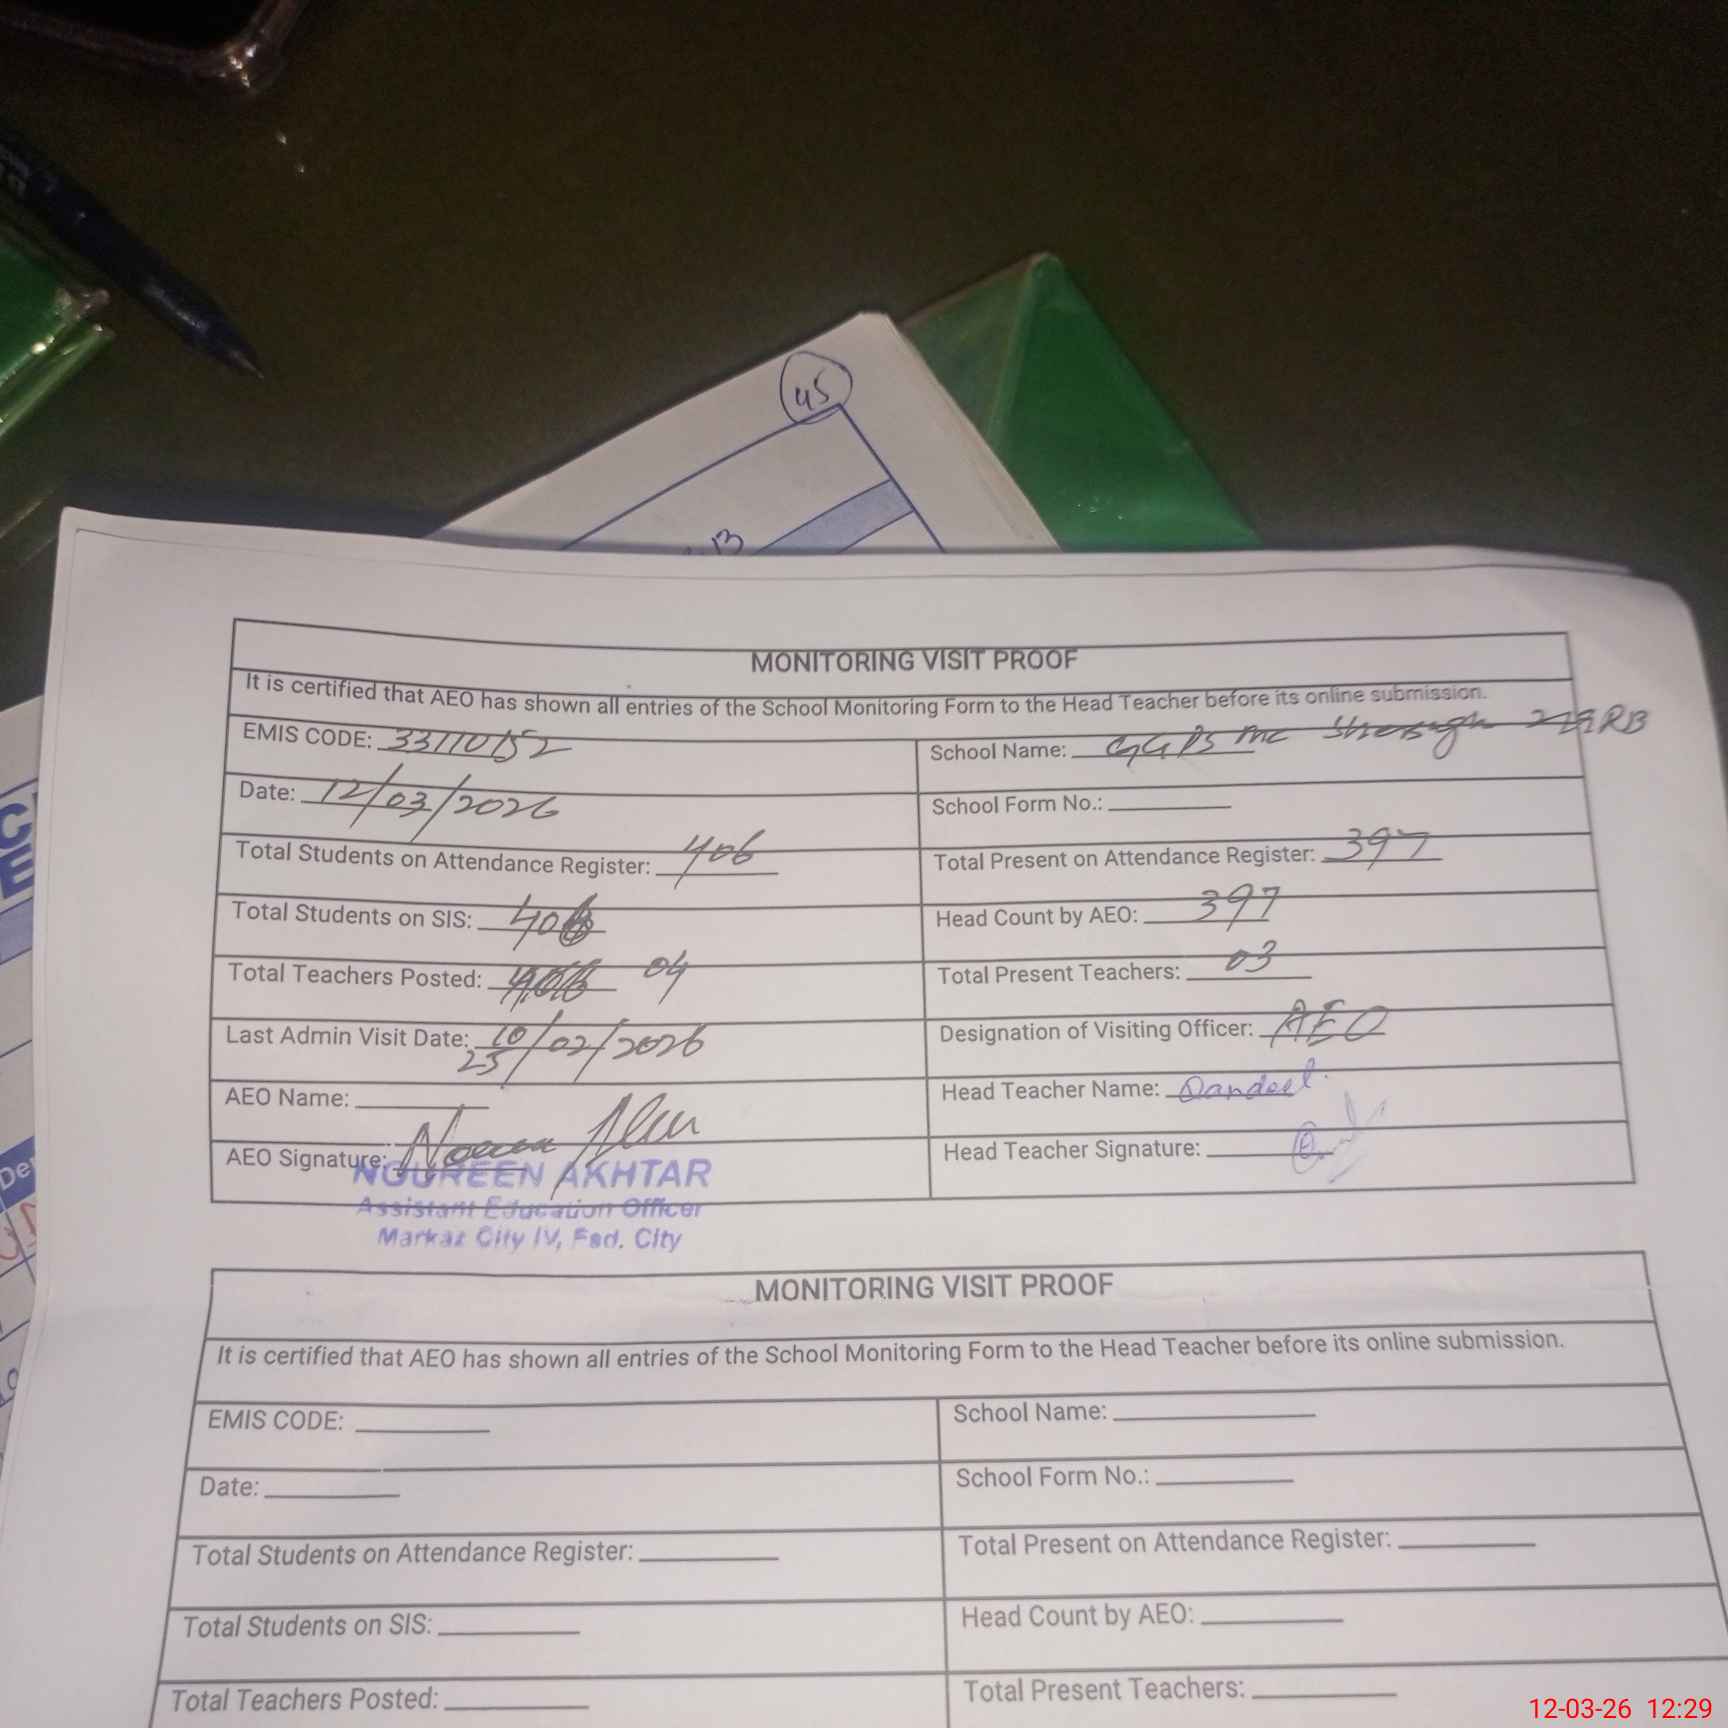 45
13
MONITORING VISIT PROOF
It is certified that AEO has shown all entries of the School Monitoring Form to the Head Teacher before its online submission.
EMIS CODE: 33110152
School Name: GGPS MC 219RB
Date: 12/03/2026
School Form No.:
Total Students on Attendance Register: 406
Total Present on Attendance Register: 397
Total Students on SIS: 406
Head Count by AEO: 397
Total Teachers Posted: 04
Total Present Teachers: 03
Last Admin Visit Date: 10/02/2026
25
Designation of Visiting Officer: AEO
AEO Name:
Head Teacher Name:
AEO Signature:
Head Teacher Signature:
NOUREEN AKHTAR
Assistant Education Officer
Markaz City IV, Fsd. City
MONITORING VISIT PROOF
It is certified that AEO has shown all entries of the School Monitoring Form to the Head Teacher before its online submission.
EMIS CODE:
School Name:
Date:
School Form No.:
Total Students on Attendance Register:
Total Present on Attendance Register:
Total Students on SIS:
Head Count by AEO:
Total Teachers Posted:
Total Present Teachers:
12-03-26 12:29